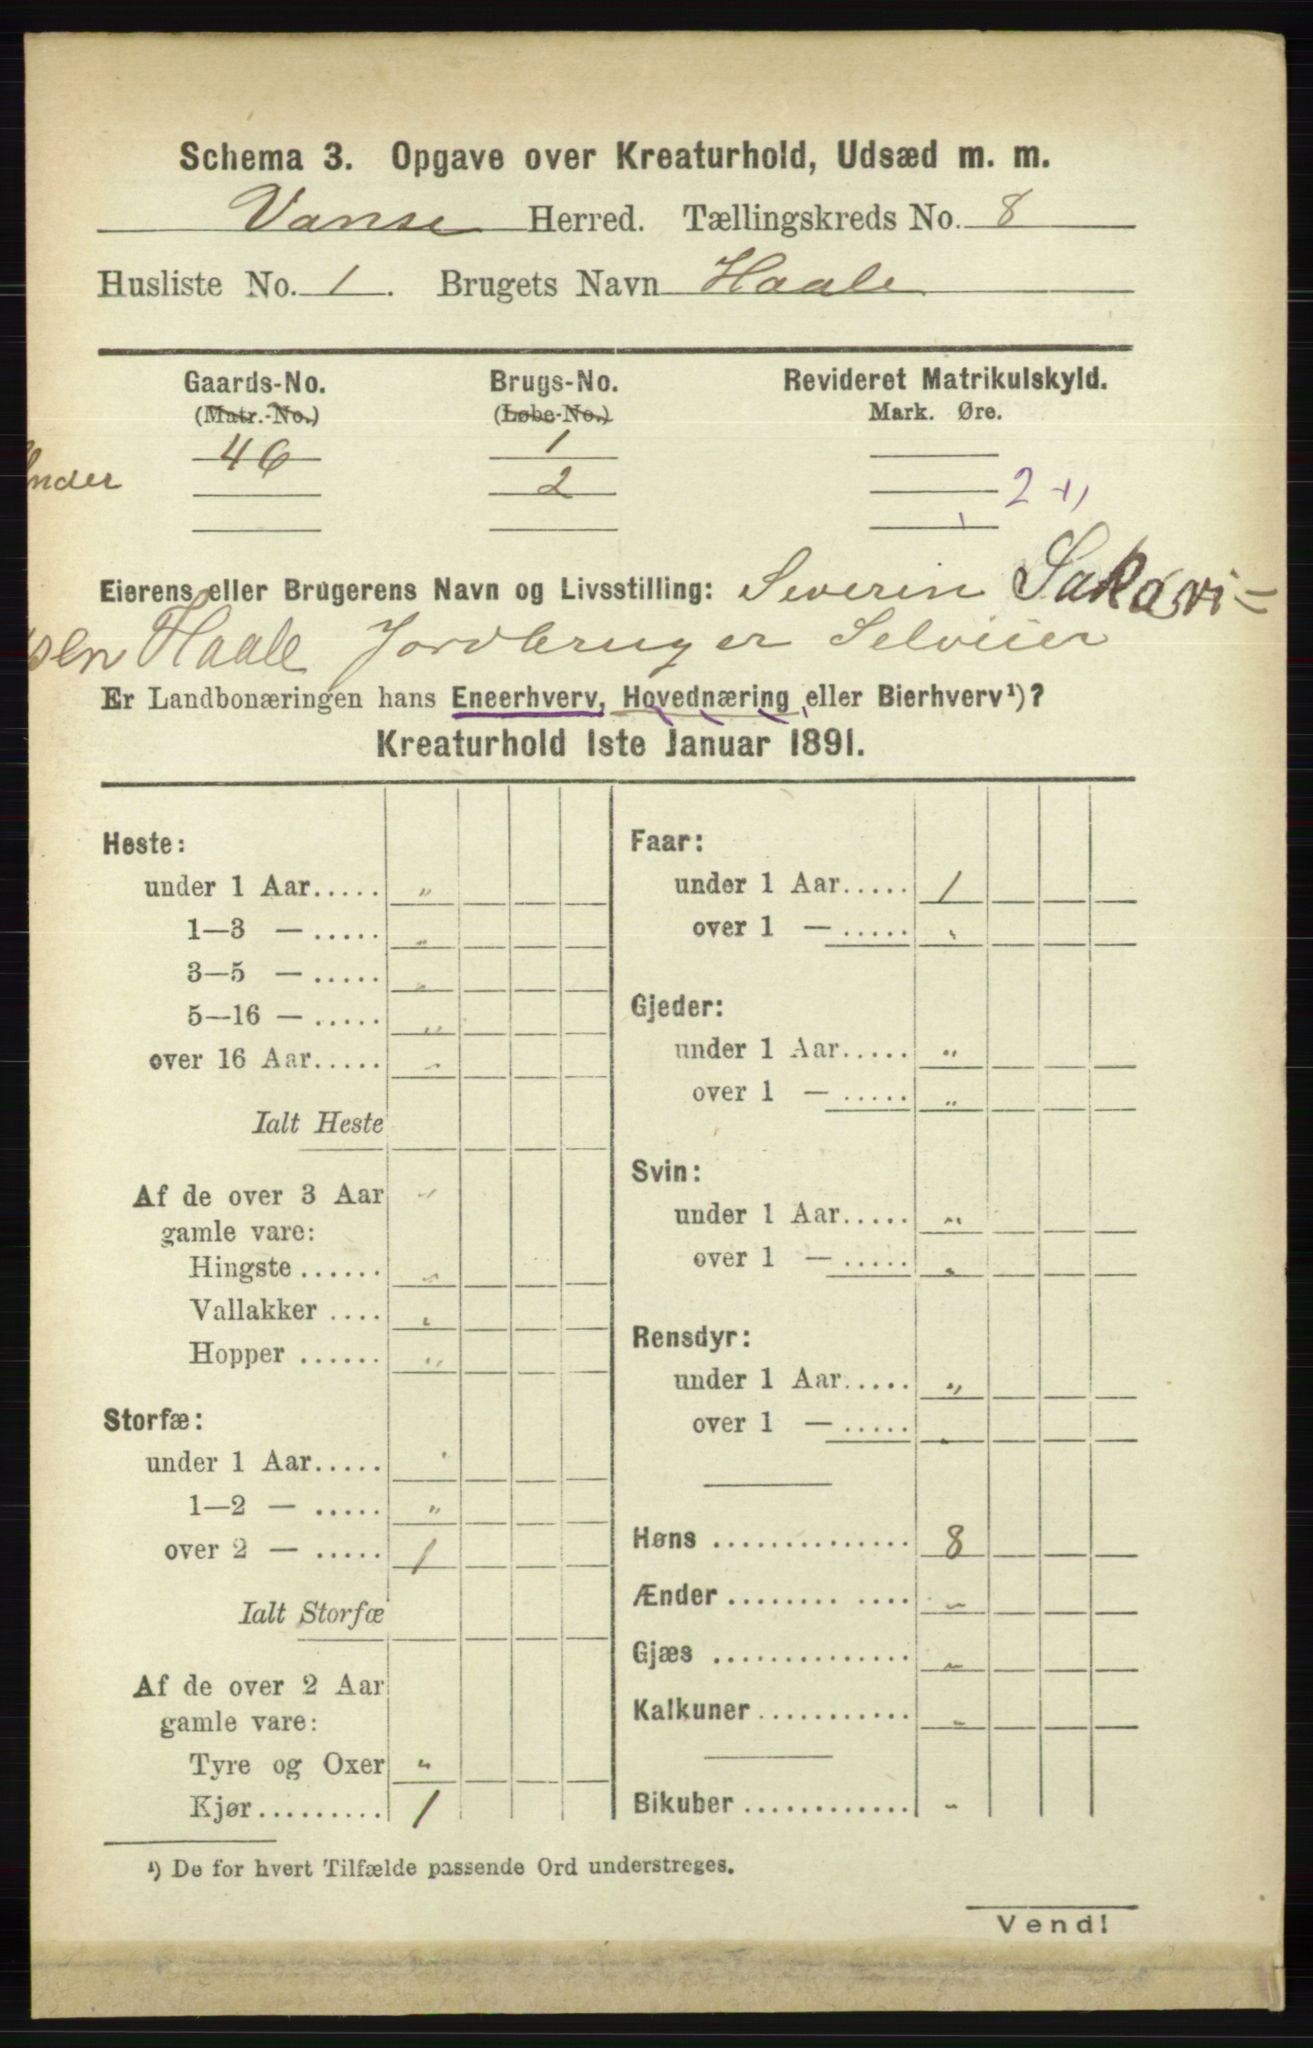 Schema 3. Opgave over Kreaturhold, Udsæd m. m.
Vanse Herred. Tællingskreds No. 8
Husliste No. 1. Brugets Navn Haale
Gaards-No. Brugs-No. Revideret Matrikulskyld.
(Matr.-No.) (Løbe-No.) Mark. Øre.
46 1
Under 2 2
Eierens eller Brugerens Navn og Livsstilling: Severin Sakari=
sen Haale Jordbruger Selveier
Er Landbonæringen hans Eneerhverv, Hovednæring eller Bierhverv¹)?
Kreaturhold 1ste Januar 1891.
Heste:
under 1 Aar..... "
1—3 — ..... "
3—5 — ..... "
5—16 — ..... "
over 16 Aar..... "
Ialt Heste
Af de over 3 Aar "
gamle vare:
Hingste ...... "
Vallakker .... "
Hopper ...... "
Storfæ:
under 1 Aar..... "
1—2 — ..... "
over 2 — ..... 1
Ialt Storfæ
Af de over 2 Aar
gamle vare:
Tyre og Oxer "
Kjør......... 1
Faar:
under 1 Aar..... 1
over 1 — ..... "
Gjeder:
under 1 Aar..... "
over 1 — ..... "
Svin:
under 1 Aar..... "
over 1 — ..... "
Rensdyr:
under 1 Aar..... "
over 1 — ..... "
Høns .............. 8
Ænder ........ .... "
Gjæs .............. "
Kalkuner ........... "
Bikuber ............ "
¹) De for hvert Tilfælde passende Ord understreges.
Vend!